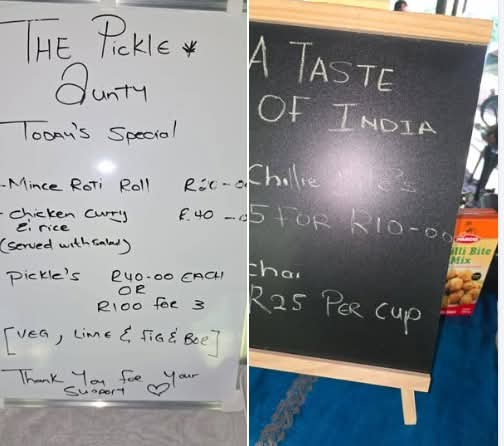 THE Pickle
Aunty
Today's Special
- Mince Roti Roll
- Chicken Curry R40 -
& rice
(served with salad)
Pickle's R40-00 EACH
OR
R100 for 3
[VEG, LIME & FIG & BOE]
Thank You for Your
Support ♡
A TASTE
OF INDIA
Chillie
5 FOR R10-00
Chai
R25 PER CUP
lli Bite
Mix